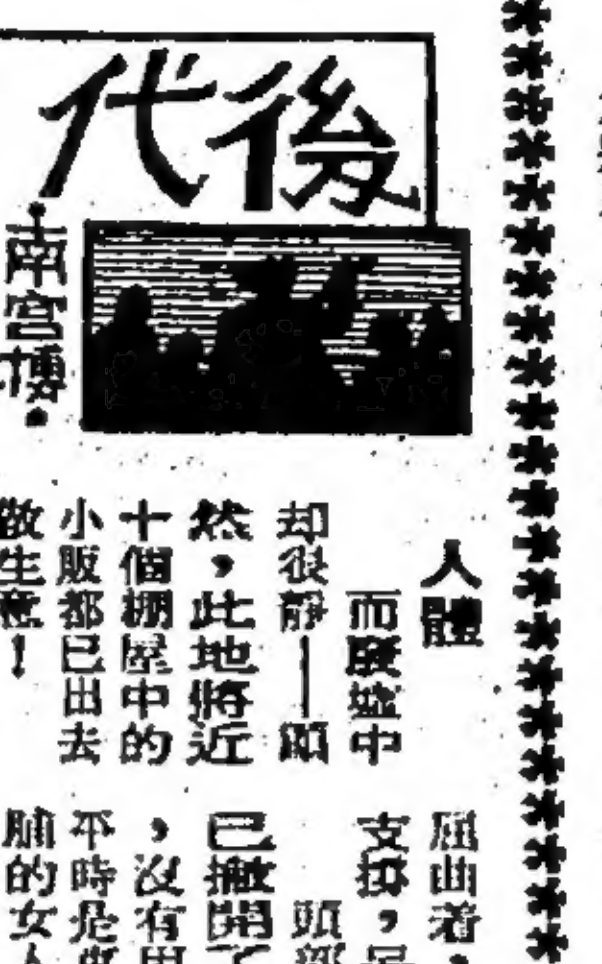 後代
南宮博·
人體
而廢墟中
却很靜——顯
然，此地將近
十個棚屋中的
小販都已出去
做生意！
屈曲着，
支撐，
頭部
已撤開了
，沒有
平時是
的女人